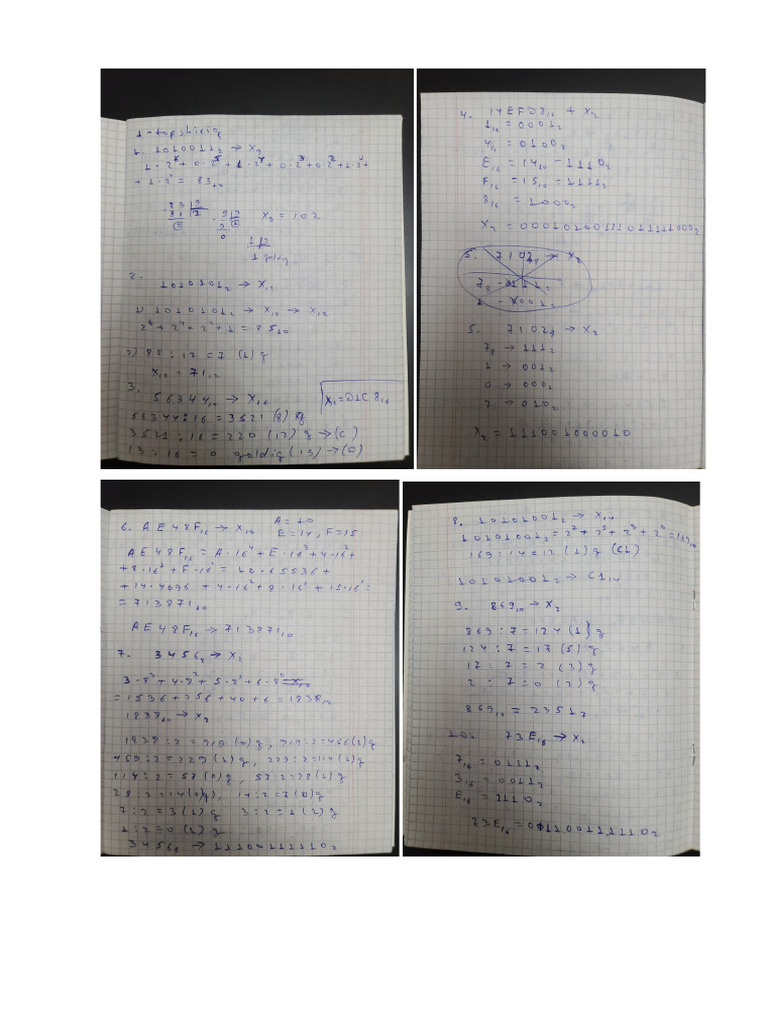 1-topshiriq
1. 1010011₂ → X₉
1·2⁶+0·2⁵+1·2⁴+0·2³+0·2²+1·2¹+
+1·2⁰=83₁₀
X₉=102
1 goldiq
2.
1010101₂ → X₁₂
1) 1010101₂ → X₁₀ → X₁₂
2⁶+2⁴+2²+1=85₁₀
2) 85:12=7 (1) q
X₁₂=71₁₂
3.
56344₁₀ → X₁₆
56344:16=3521 (8) q
3521:16=220 (12) q →(C)
13:16=0 goldiq (13) →(D)
4. 14EFD8₁₆ → X₂
1₁₆=0001₂
4₁₆=0100₂
E₁₆=14₁₀-1110₂
F₁₆=15₁₀=1111₂
8₁₆=1000₂
5. 7102₈ → X₂
5. 7102₈ → X₂
7₈ → 111₂
1 → 001₂
0 → 000₂
2 → 010₂
X₂=111001000010
6. AE48F₁₆ → X₁₀ A=10
E=14, F=15
AE48F₁₆=A·16⁴+E·16³+4·16²+
+8·16¹+F·16⁰=10·65536+
+14·4096+4·16²+8·16¹+15·16⁰=
=713871₁₀
AE48F₁₆ → 713871₁₀
7. 3456₈ → X₂
3·8³+4·8²+5·8¹+6·8⁰=
=1536+256+40+6=1838₁₀
1838₁₀ → X₂
1838:2=919 (0)q, 919:2=459(1)q
459:2=229 (1)q, 229:2=114(1)q
114:2=57 (0)q, 57:2=28(1)q
28:2=14(0)q, 14:2=7(0)q
7:2=3(1)q 3:2=1(1)q
1:2=0(1)q
3456₈ → 11100101110₂
8. 10101001₂ → X₁₄
10101001₂=2⁷+2⁵+2³+2⁰=169₁₀
169:14=12(1)q (C1)
10101001₂ → C1₁₄
9. 869₁₀ → X₇
869:7=124(1)q
124:7=17(5)q
17:7=2(3)q
2:7=0(2)q
869₁₀=2351₇
10. 73E₁₆ → X₂
7₁₆=0111₂
3₁₆=0011₂
E₁₆=1110₂